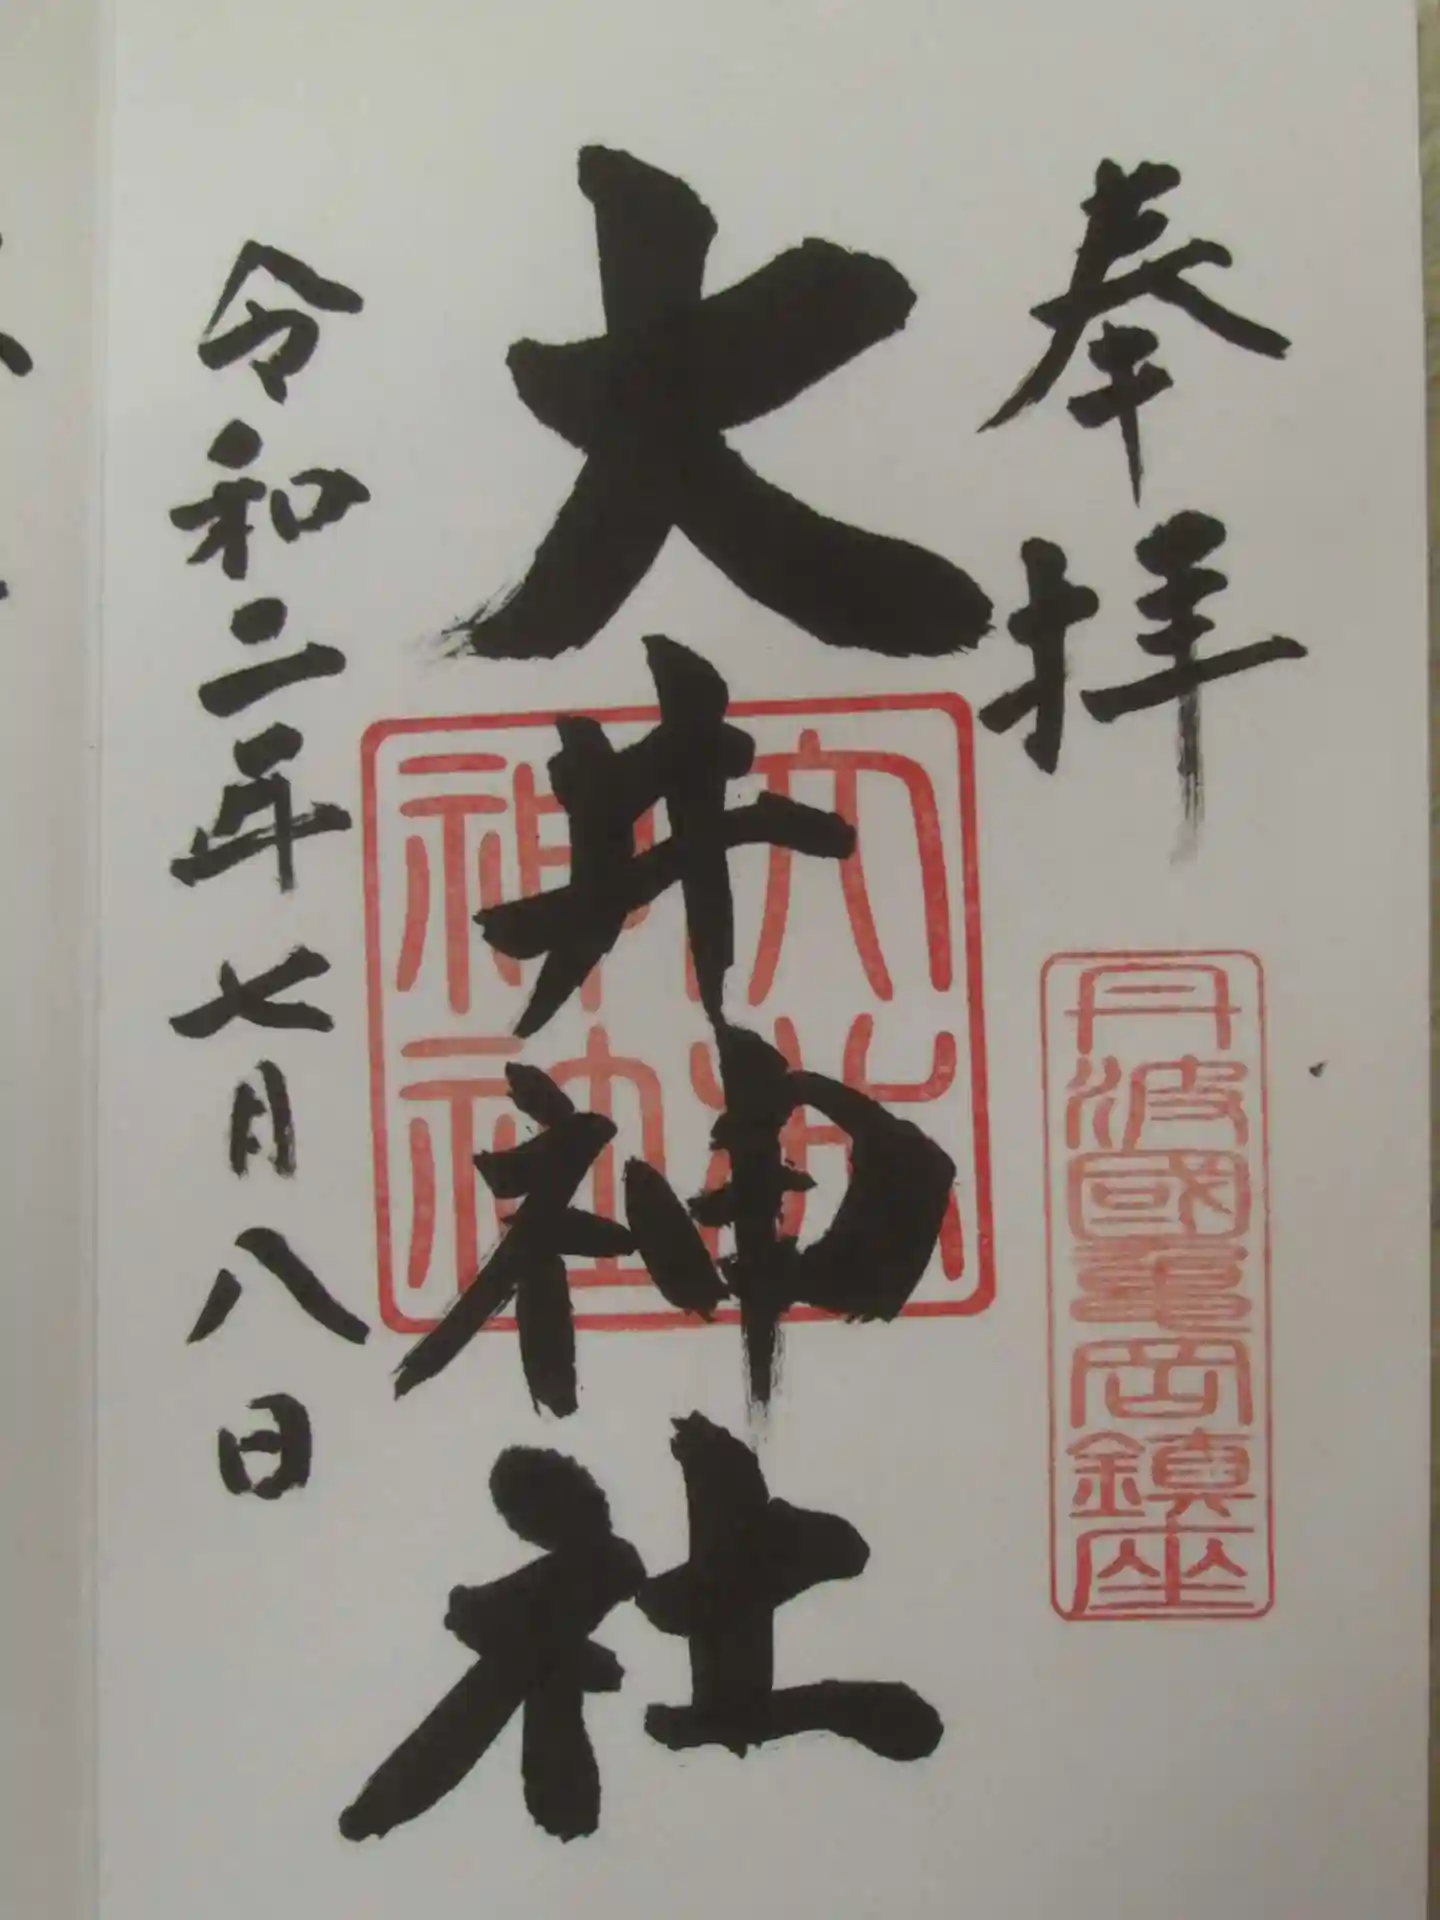 奉拝
丹波國亀岡鎮座
大井神社
大井
神社
令和二年七月八日